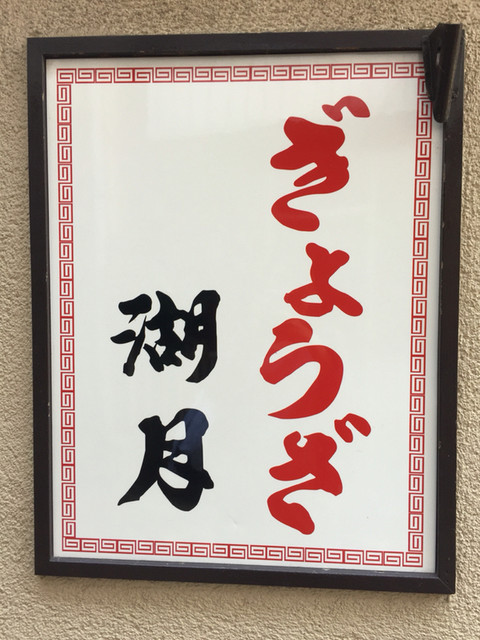 ぎょうざ
湖月